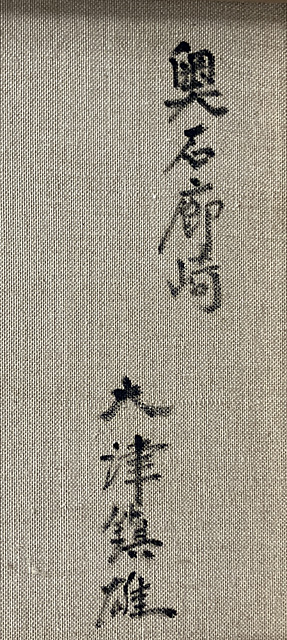 奥石廊崎
大津鎮雄